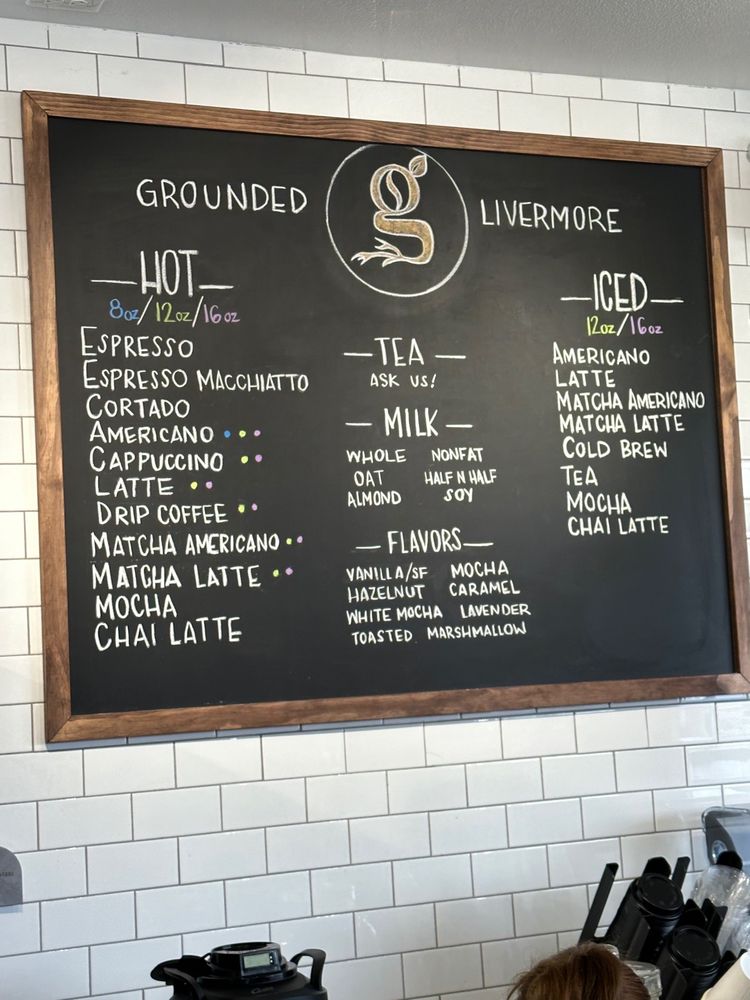 GROUNDED g LIVERMORE
HOT
8oz/12oz/16oz
ESPRESSO
ESPRESSO MACCHIATTO
CORTADO
AMERICANO
CAPPUCCINO
LATTE
DRIP COFFEE
MATCHA AMERICANO
MATCHA LATTE
MOCHA
CHAI LATTE
TEA
ASK US!
MILK
WHOLE NONFAT
OAT HALF N HALF
ALMOND SOY
FLAVORS
VANILLA/SF MOCHA
HAZELNUT CARAMEL
WHITE MOCHA LAVENDER
TOASTED MARSHMALLOW
ICED
12oz/16oz
AMERICANO
LATTE
MATCHA AMERICANO
MATCHA LATTE
COLD BREW
TEA
MOCHA
CHAI LATTE